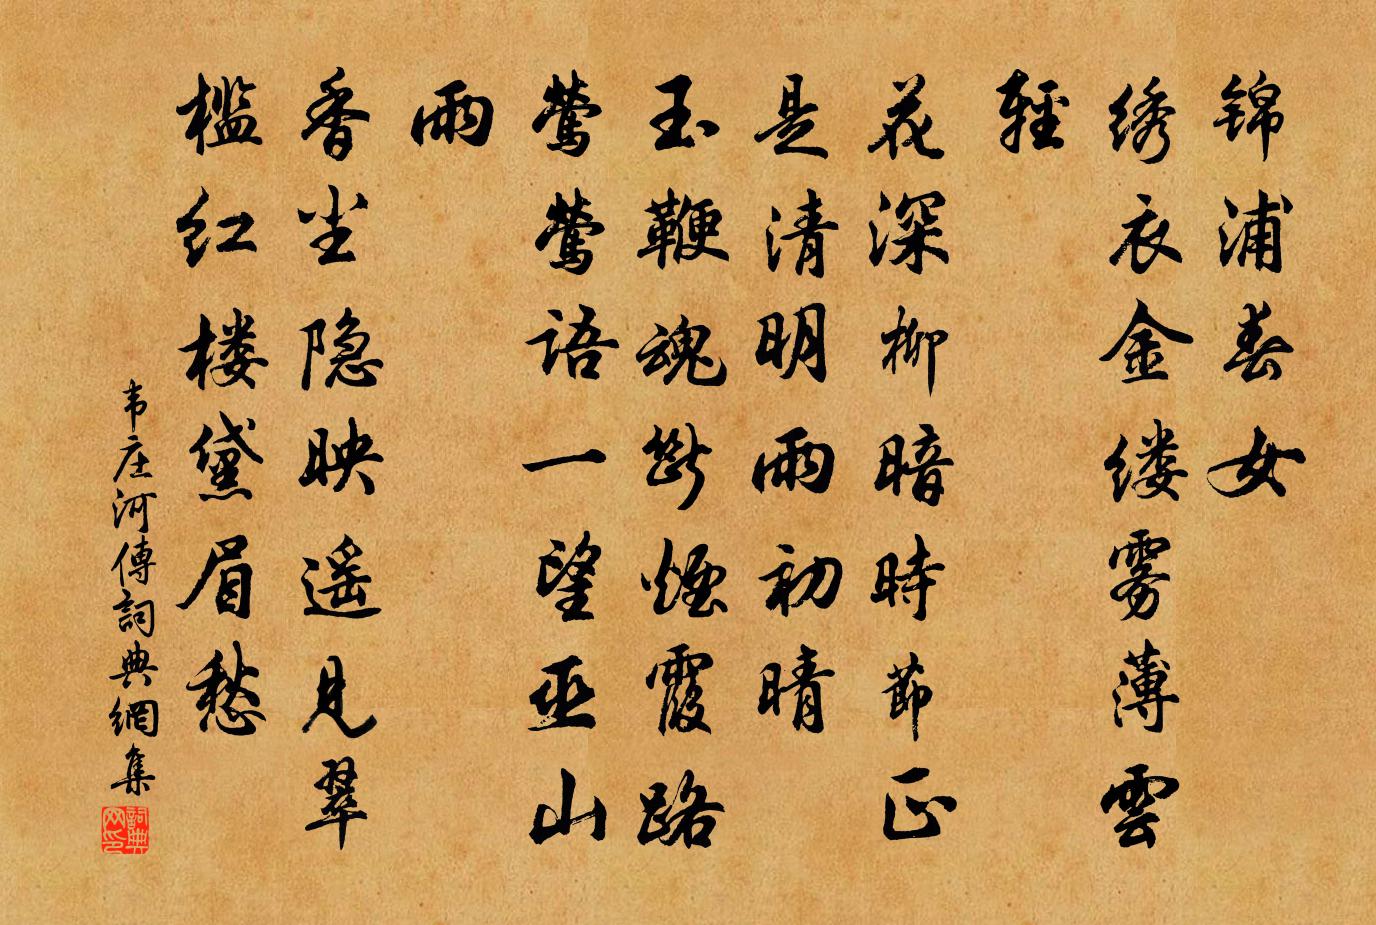 锦浦春女
绣衣金缕雾薄雲
輕
花深柳暗時節正
是清明雨初晴
玉鞭魂斷煙霞路
莺莺語一望巫山
雨
香尘隐映遥見翠
槛红楼黛眉愁
韦庄河傳詞典網集
詞典网印